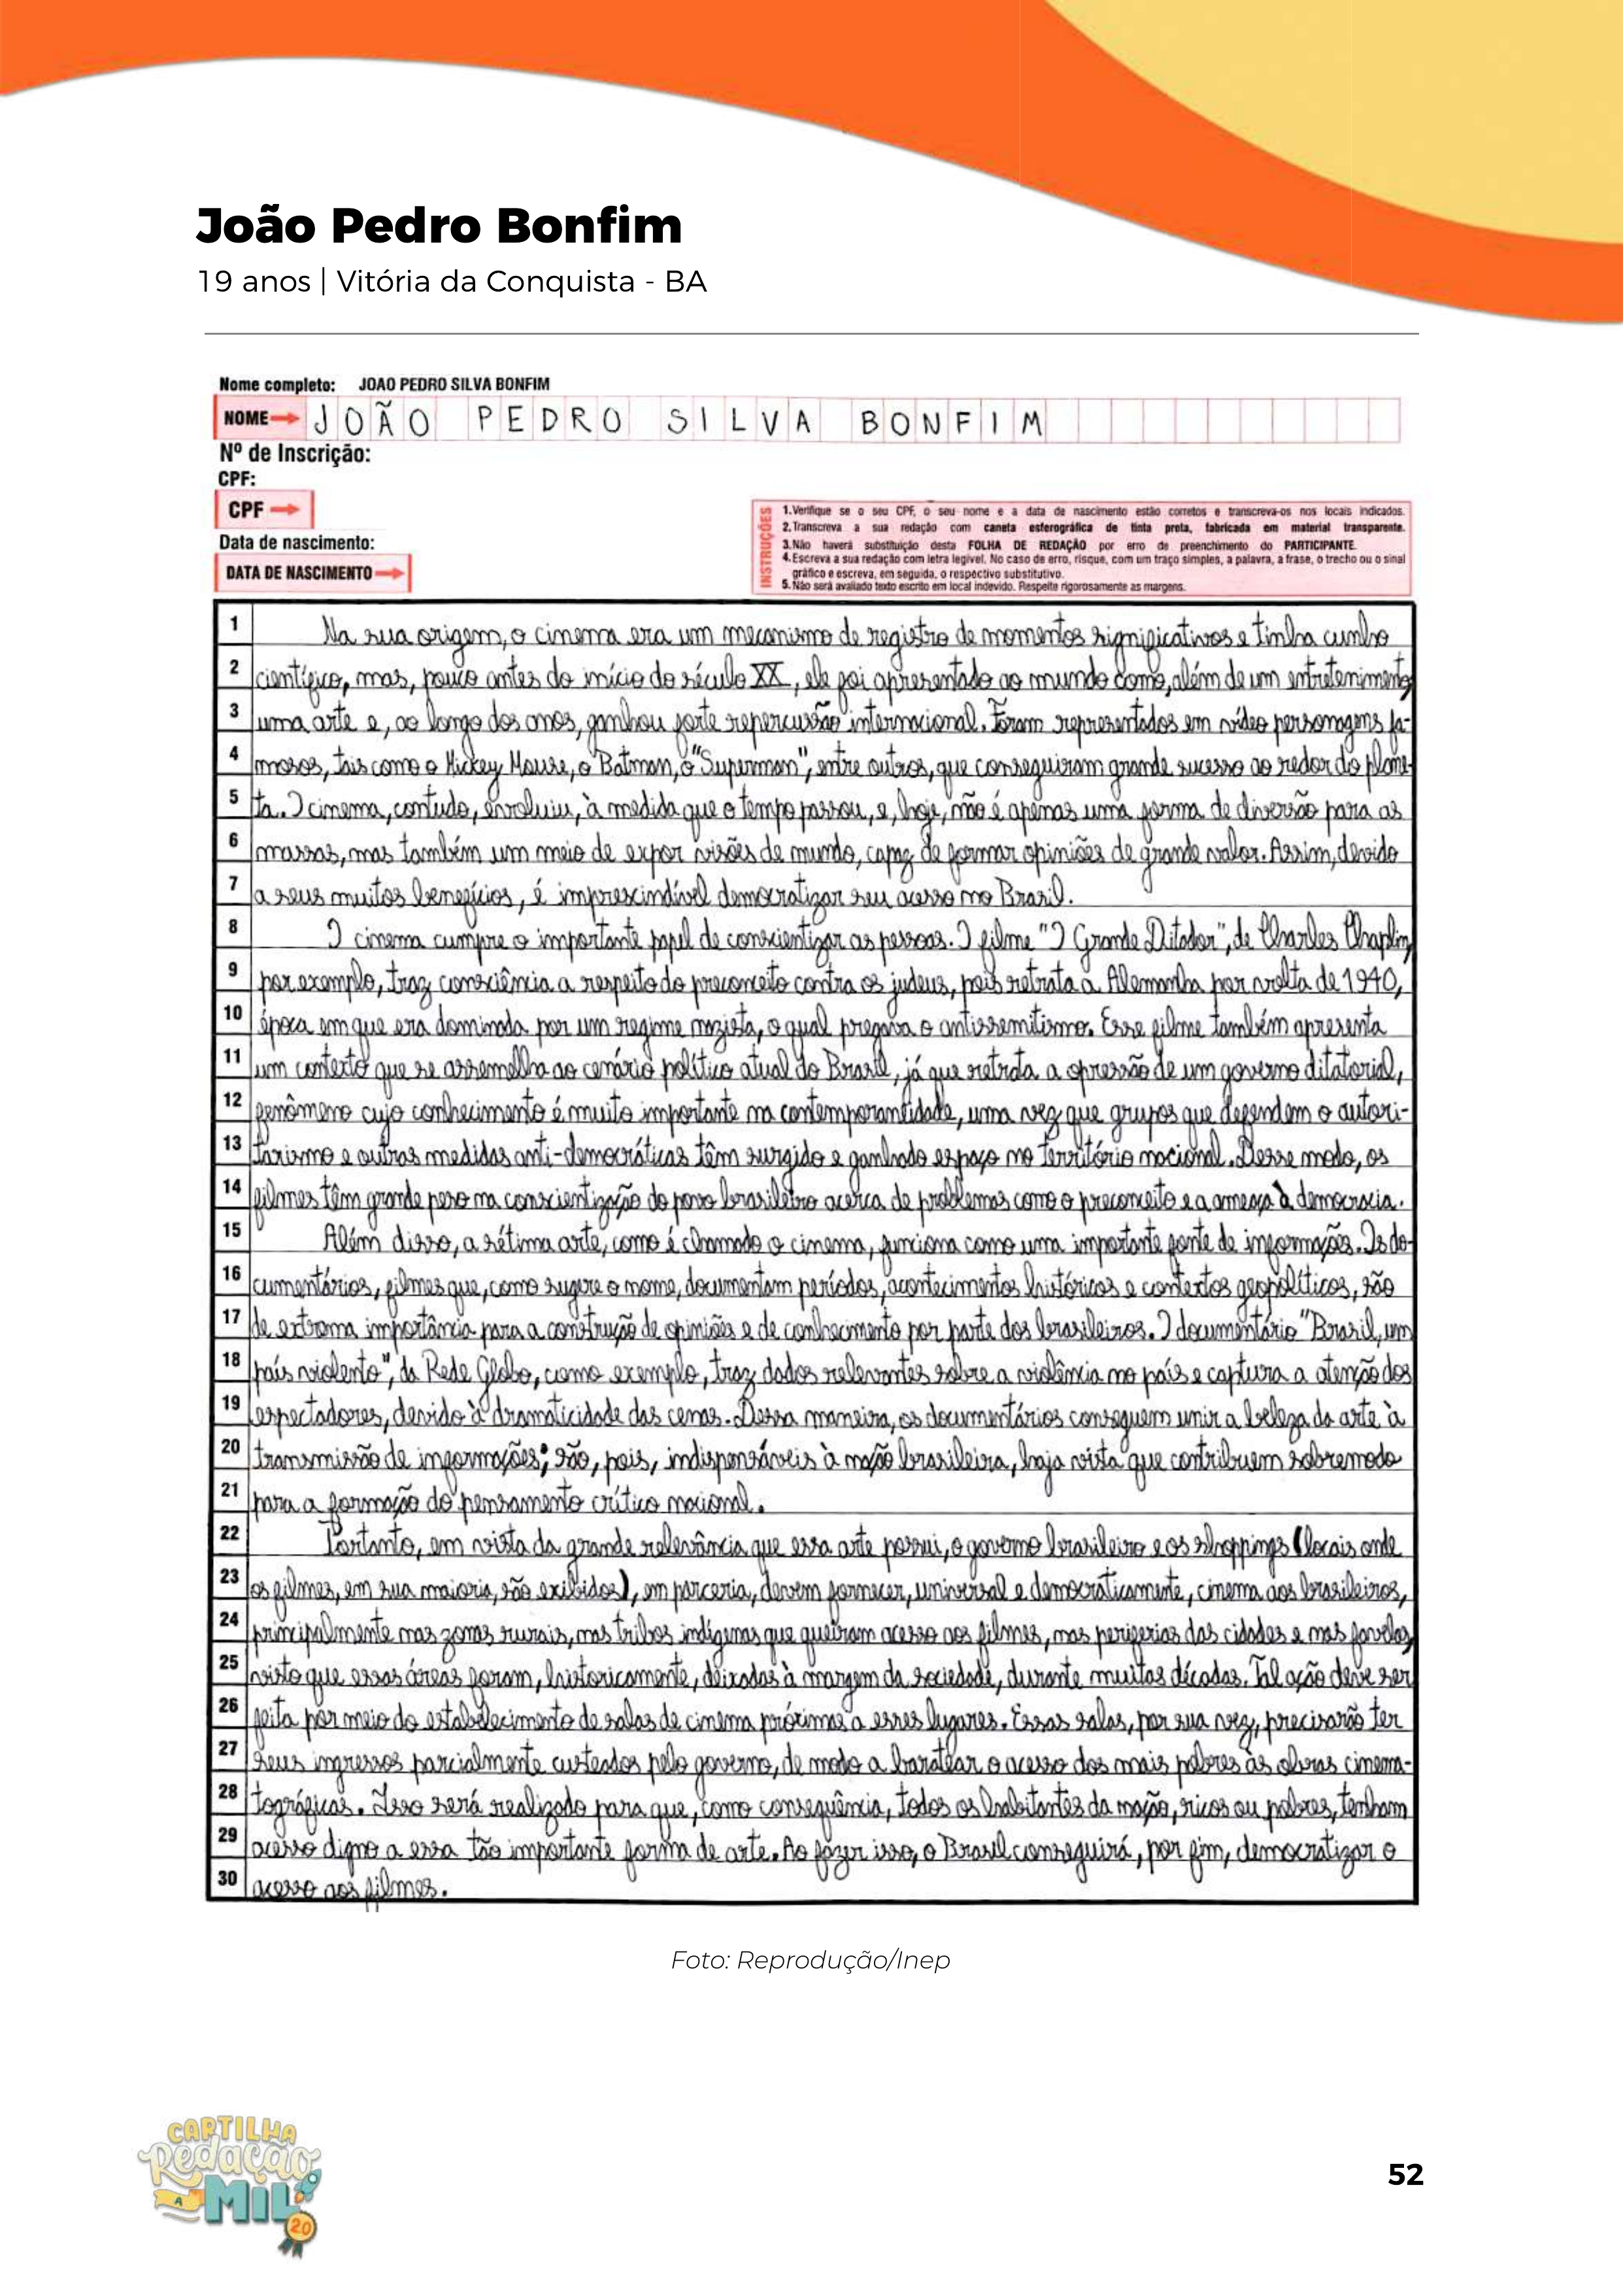 João Pedro Bonfim
19 anos | Vitória da Conquista - BA
Nome completo: JOAO PEDRO SILVA BONFIM
NOME JOÃO PEDRO SILVA BONFIM
Nº de Inscrição:
CPF:
CPF
Data de nascimento:
DATA DE NASCIMENTO
INSTRUÇÕES
1.Verifique se o seu CPF, o seu nome e a data de nascimento estão corretos e transcreva-os nos locais indicados.
2.Transcreva a sua redação com caneta esferográfica de tinta preta, fabricada em material transparente.
3.Não haverá substituição desta FOLHA DE REDAÇÃO por erro de preenchimento do PARTICIPANTE.
4.Escreva a sua redação com letra legível. No caso de erro, risque, com um traço simples, a palavra, a frase, o trecho ou o sinal
gráfico e escreva, em seguida, o respectivo substitutivo.
5.Não será avaliado texto escrito em local indevido. Respeite rigorosamente as margens.
1 Na sua origem, o cinema era um mecanismo de registro de momentos significativos e tinha cunho
2 científico, mas, pouco antes do início do século XX, ele foi apresentado ao mundo como, além de um entretenimento,
3 uma arte e, ao longo dos anos, ganhou forte repercussão internacional. Foram representados em vídeo personagens fa-
4 mosos, tais como o Mickey Mouse, o Batman, o "Superman", entre outros, que conseguiram grande sucesso ao redor do plane-
5 ta. O cinema, contudo, evoluiu, à medida que o tempo passou, e, hoje, não é apenas uma forma de diversão para as
6 massas, mas também um meio de expor visões de mundo, capaz de formar opiniões de grande valor. Assim, devido
7 a seus muitos benefícios, é imprescindível democratizar seu acesso no Brasil.
8 O cinema cumpre o importante papel de conscientizar as pessoas. O filme "O Grande Ditador", de Charles Chaplin,
9 por exemplo, traz consciência a respeito do preconceito contra os judeus, pois retrata a Alemanha por volta de 1940,
10 época em que era dominada por um regime nazista, o qual pregava o antissemitismo. Esse filme também apresenta
11 um contexto que se assemelha ao cenário político atual do Brasil, já que retrata a opressão de um governo ditatorial,
12 fenômeno cujo conhecimento é muito importante na contemporaneidade, uma vez que grupos que defendem o autori-
13 tarismo e outras medidas anti-democráticas têm surgido e ganhado espaço no território nacional. Desse modo, os
14 filmes têm grande peso na conscientização do povo brasileiro acerca de problemas como o preconceito e a ameaça à democracia.
15 Além disso, a sétima arte, como é chamado o cinema, funciona como uma importante fonte de informações. Os do-
16 cumentários, filmes que, como sugere o nome, documentam períodos, acontecimentos históricos e contextos geopolíticos, são
17 de extrema importância para a construção de opiniões e de conhecimento por parte dos brasileiros. O documentário "Brasil, um
18 país violento", da Rede Globo, como exemplo, traz dados relevantes sobre a violência no país e captura a atenção dos
19 espectadores, devido à dramaticidade das cenas. Dessa maneira, os documentários conseguem unir a beleza da arte à
20 transmissão de informações; são, pois, indispensáveis à nação brasileira, haja vista que contribuem sobremodo
21 para a formação do pensamento crítico nacional.
22 Portanto, em vista da grande relevância que essa arte possui, o governo brasileiro e os shoppings (locais onde
23 os filmes, em sua maioria, são exibidos), em parceria, devem fornecer, universal e democraticamente, cinema aos brasileiros,
24 principalmente nas zonas rurais, nas tribos indígenas que queiram acesso aos filmes, nas periferias das cidades e nas favelas,
25 visto que essas áreas foram, historicamente, deixadas à margem da sociedade, durante muitas décadas. Tal ação deve ser
26 feita por meio do estabelecimento de salas de cinema próximas a esses lugares. Essas salas, por sua vez, precisarão ter
27 seus ingressos parcialmente custeados pelo governo, de modo a baratear o acesso dos mais pobres às obras cinema-
28 tográficas. Isso será realizado para que, como consequência, todos os habitantes da nação, ricos ou pobres, tenham
29 acesso digno a essa tão importante forma de arte. Ao fazer isso, o Brasil conseguirá, por fim, democratizar o
30 acesso aos filmes.
Foto: Reprodução/Inep
CARTILHA
Redação
A
MIL
20
52